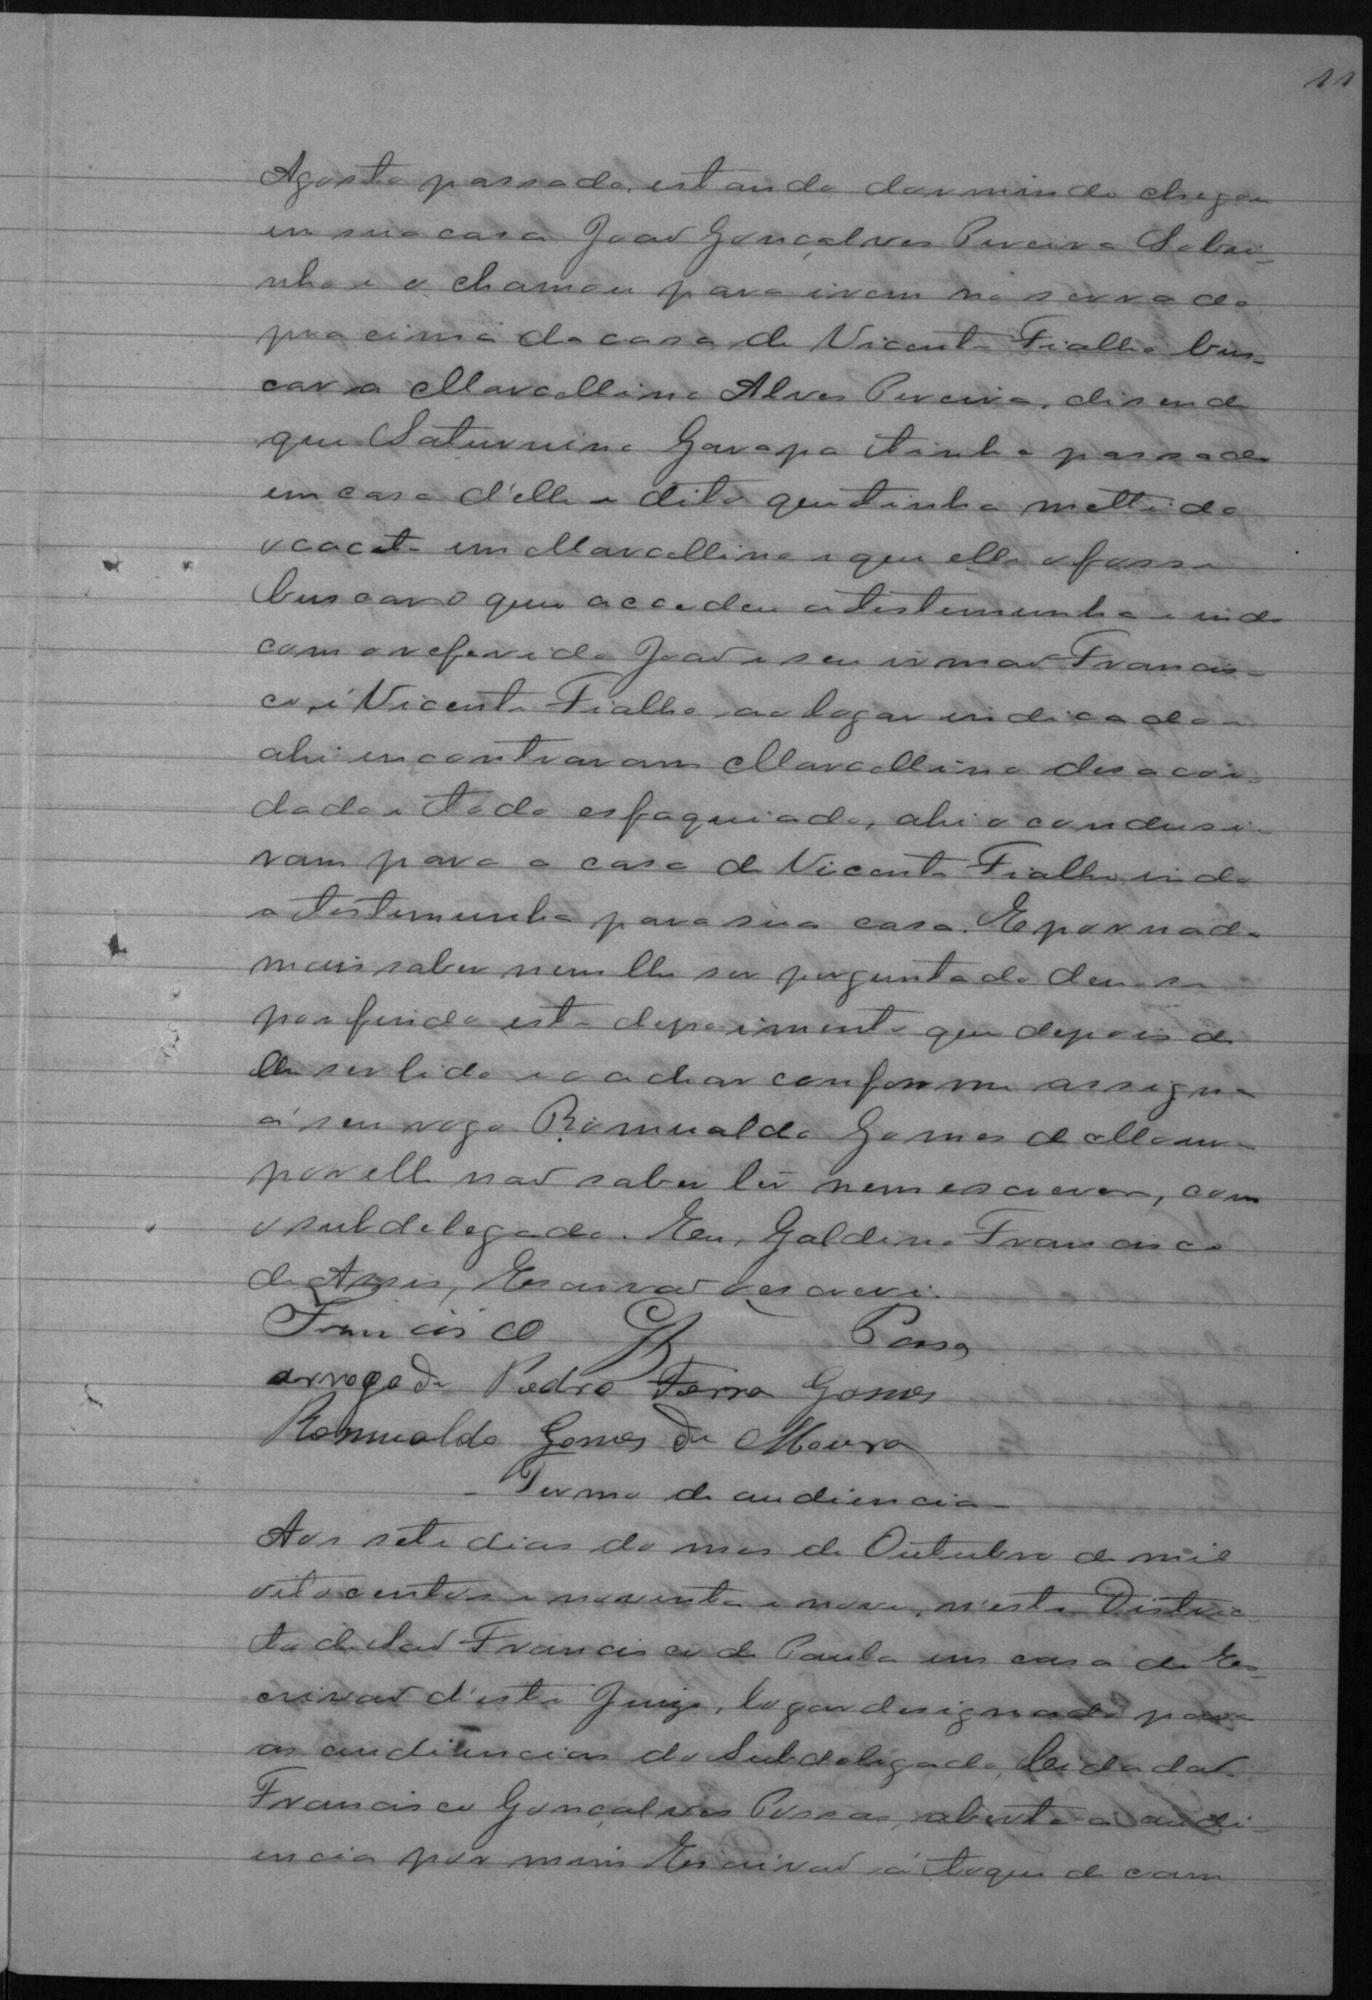 11
Agosto passado, estando dormindo chegou
em sua casa João Gonçalves Pereira Sobri-
nho e o chamou para irem no serrado
pra cima da casa de Vicente Fialho bus-
car a Marcellino Alves Pereira, disendo
que Saturnino Garapa tinha passado
em casa d'elle e dito que tinha mettido
o cacete em Marcellino e que elle o fosse
buscar o que accedeu a testemunha e indo
com o referido João e seu irmão Francis-
co, é Vicente Fialho, ao logar indicado e
ahi encontraram Marcellino desacor-
dado e todo esfaquiado, ahi o condusi-
ram para a casa de Vicente Fialho indo
a testemunha para sua casa. E por nada
mais saber nem lhe ser perguntado deu-se
por findo este depoimento que depois de
lhe ser lido e o achar conforme assigna
á seu rogo Romualdo Gomes de Moura
por elle não saber lêr nem escrever, com
o subdelegado. Eu, Galdino Francisco
de Assis, Escrivão o escrevi.
Francisco G Possa
arrogo de Pedro Gomes
Romualdo Gomes de Moura
- Termo de audiencia -
Aos sete dias do mes de Outubro de mil
oitocentos e noventa e nove, n'este Distric-
to de São Francisco de Paula em casa do Es-
crivão d'este Juizo, logar designado para
as audiencias do Subdelegado, Cidadão
Francisco Gonçalves Possas, aberta a audi-
encia por mim Escrivão á toque de cam